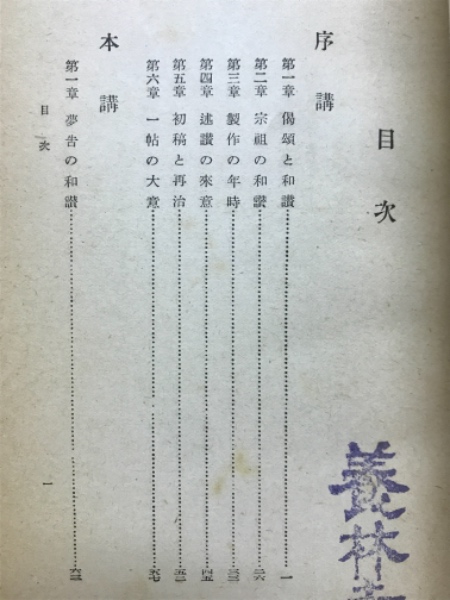 目次
序講
第一章 偈頌と和讃 一
第二章 宗祖の和讃 二六
第三章 製作の年時 三三
第四章 述讃の來意 四五
第五章 初稿と再治 五二
第六章 一帖の大意 五七
本講
第一章 夢告の和讃 六三
目次 一
養林